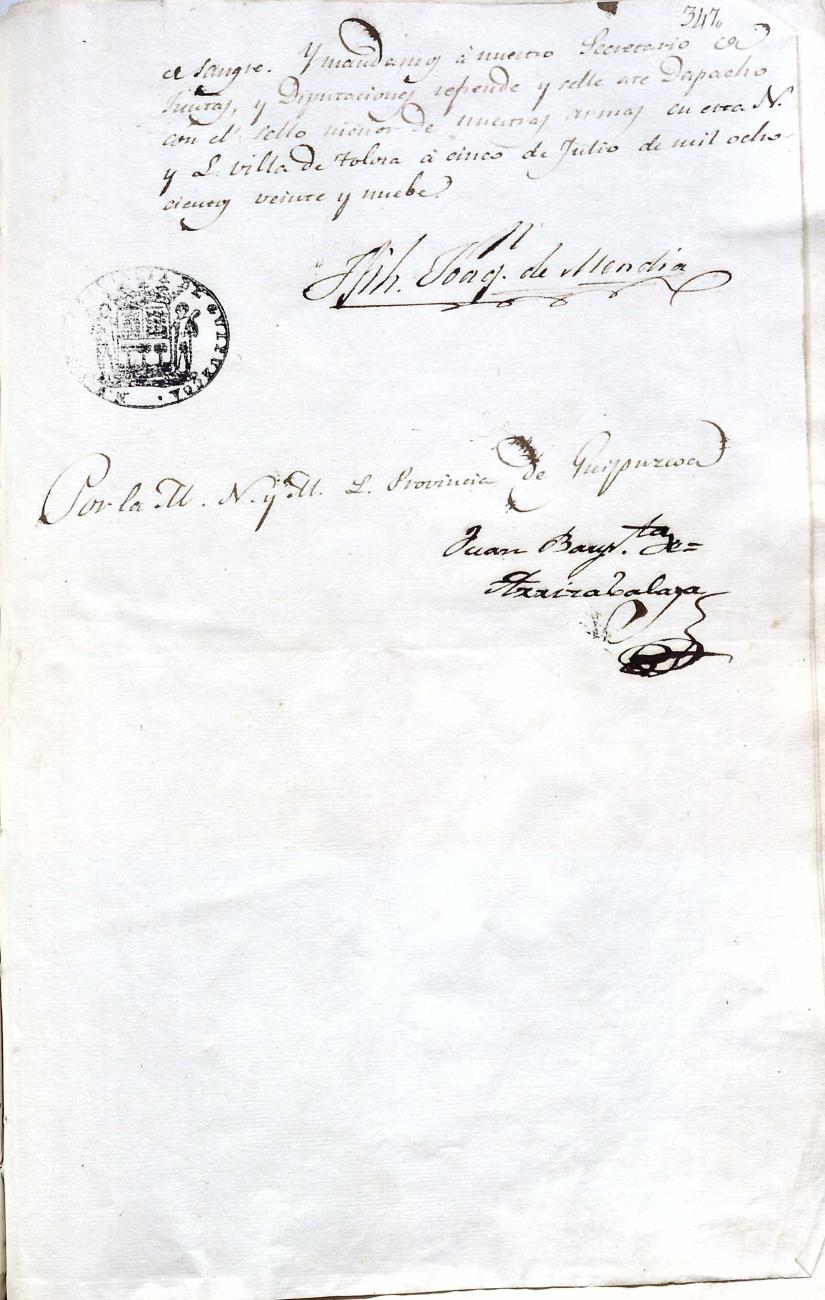 347
de sangre. Y mandamos à nuestro Secretario de
Juntas, y Diputaciones refrende y selle este Despacho
con el sello menor de nuestras armas en esta N.
y L. villa de Tolosa à cinco de Julio de mil ocho-
cientos veinte y nuebe.
Joaqn. de Mendia
DE GUIPUZCOA
Por la M. N. y M. L. Provincia de Guipuzcoa
Juan Baup.ta de=
Arrizabalaga